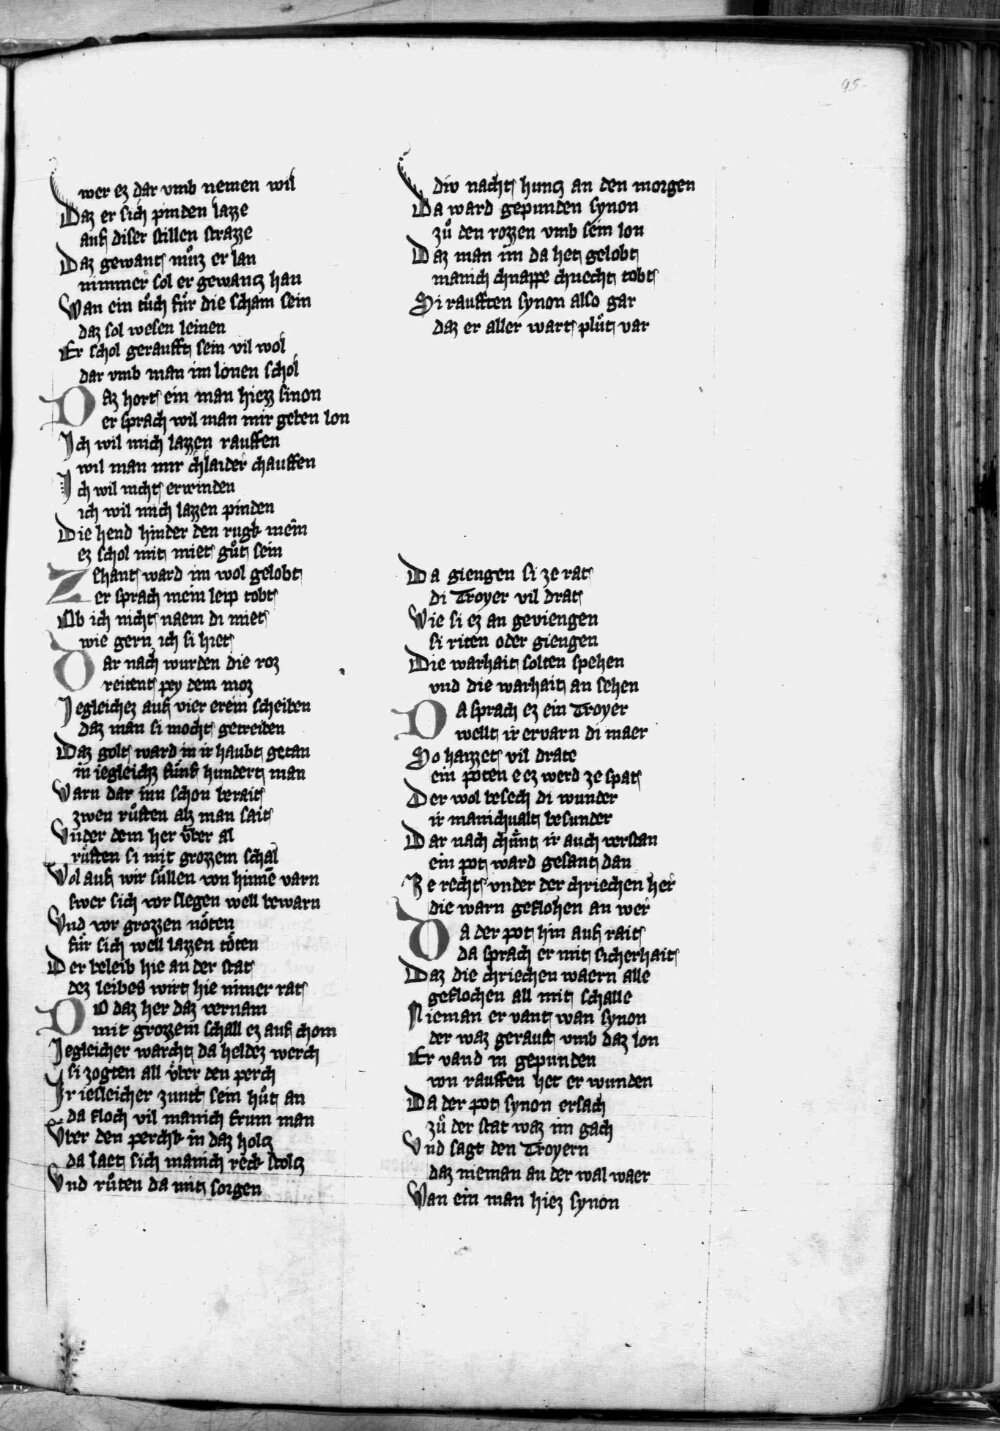 95.
wer ez dar vmb nemen wil
Daz er sich pinden lazze
auf diser stillen strazze
Daz gewant muͦz er lan
nimmer sol er gewant han
Wan ein tuͤch fuͤr die scham sein
daz sol wesen leinen
Er schol gerauft sein vil wol
dar vmb man im lonen schol
Daz hort ein man hiezz sinon
er sprach wil man mir geben lon
Ich wil mich lazzen rauffen
wil man mir chlaider chauffen
Ich wil nicht erwinden
ich wil mich lazzen pinden
Die hend hinder den rugk mein
ez schol mit miet guͦt sein
Zehant ward im wol gelobt
er sprach mein leip tobt
Ob ich nicht naem di miet
wie gern ich si hiet
Dar nach wurden die roz
reitent pey dem moz
Iegleichez auf vier erein scheiben
daz man si mocht getreiben
Daz golt ward in ir haubt getan
in iegleichz fuͤnf hundert man
Warn dar inn schon berait
zwen ruͦften alz man sait
Vnder dem her vͤber al
ruͦften si mit grozzem schal
Wol auf wir suͤllen von hinnē varn
swer sich vor slegen well bewarn
Vnd vor grozzen noͤten
fuͤr sich well lazzen toͤten
Der beleib hie an der stat
dez leibes wirt hie nimer rat
Do daz her daz vernam
mit grozzem schall ez auf chom
Iegleicher warcht da heldez werch
si zogten all vͤber den perch
Ir iesleicher zunt sein huͤt an
da floch vil manich frum man
Vͤber den perchk in daz holtz
da laet sich manich reck stoltz
Vnd ruͦten da mit sorgen
div nacht huntz an den morgen
Da ward gepunden synon
zuͦ den rozzen vmb sein lon
Daz man im da het gelobt
manich chnappe chnecht tobt
Si raufften synon also gar
daz er aller wart pluͦt var
Da giengen si ze rat
di Troyer vil drat
Wie si ez an geviengen
si riten oder giengen
Die warhait solten spehen
vnd die warhait an sehen
Da sprach ez ein Troyer
wellt ir ervarn di maer
So haizzet vil drate
ein poten e ez werd ze spat
Der wol besech di wunder
ir manichualt besunder
Dar nach chuͤnt ir auch verstan
ein pot ward gesant dan
Ze recht vnder der chriechen her
die warn geflohen an wer
Da der pot hin auf rait
da sprach er mit sicherhait
Daz die chriechen waern alle
geflochen all mit schalle
Nieman er vant wan synon
der waz gerauft vmb daz lon
Er vand in gepunden
von rauffen het er wunden
Da der pot synon ersach
zuͦ der stat waz im gach
Vnd sagt den Troyern
daz nieman an der wal waer
Wan ein man hiez synon